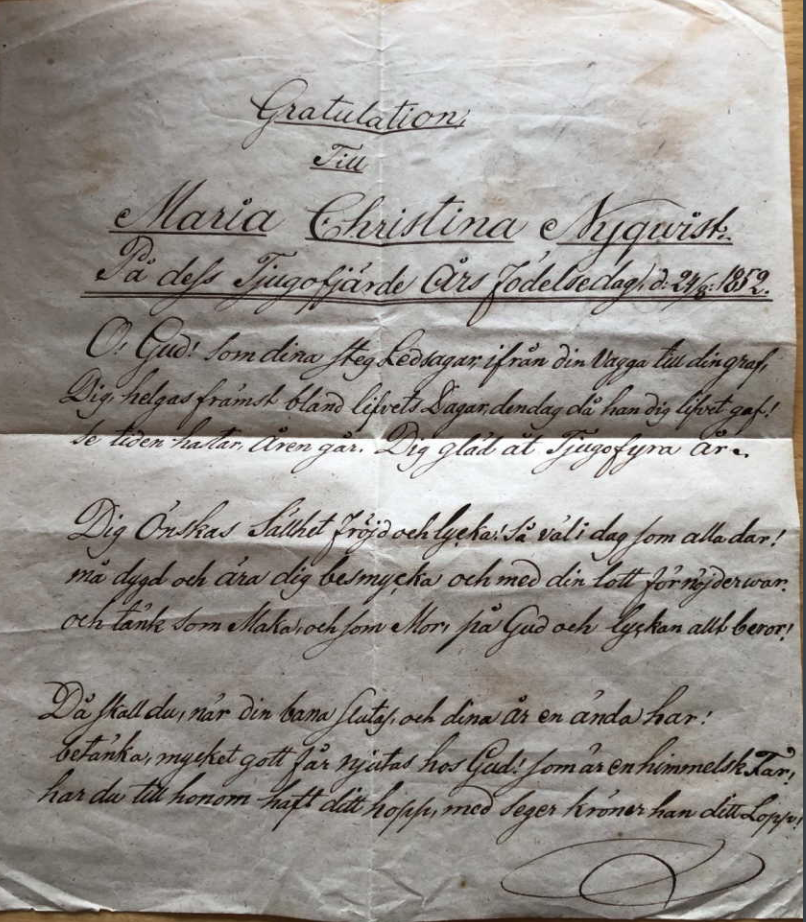 Gratulation,
Till
Maria Christina Nyqwist.
På dess Tjugofjärde Års födelsedag, d: 24/8: 1852.
O! Gud! som dina steg Ledsagar, ifrån din Vagga till din graf,
Dig, helgas främst bland lifvets Dagar, den dag då han dig lifvet gaf!
se tiden hastar, Åren går. Dig gläd åt Tjugofyra år.
Dig Önskas Sällhet fröjd och lycka! Så väl i dag som alla dar!
må dygd och ära dig besmycka och med din lott förnöjder war.
och tänk som Maka, och som Mor, på Gud och lyckan allt beror!
Då skall du, när din bana slutas, och dina år en ända har!
betänka, mycket gott får njutas hos Gud! som är en himmelsk Far,
har du till honom haft ditt hopp, med seger kröner han ditt Lopp!